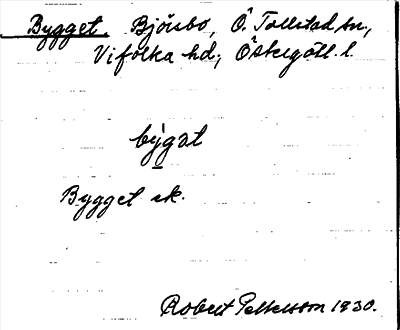 Bygget, Björsbo, Ö. Tollstad sn,
Vifolka hd; Östergötl. l.
býgat
Bygget sk.
Robert Pettersson 1930.